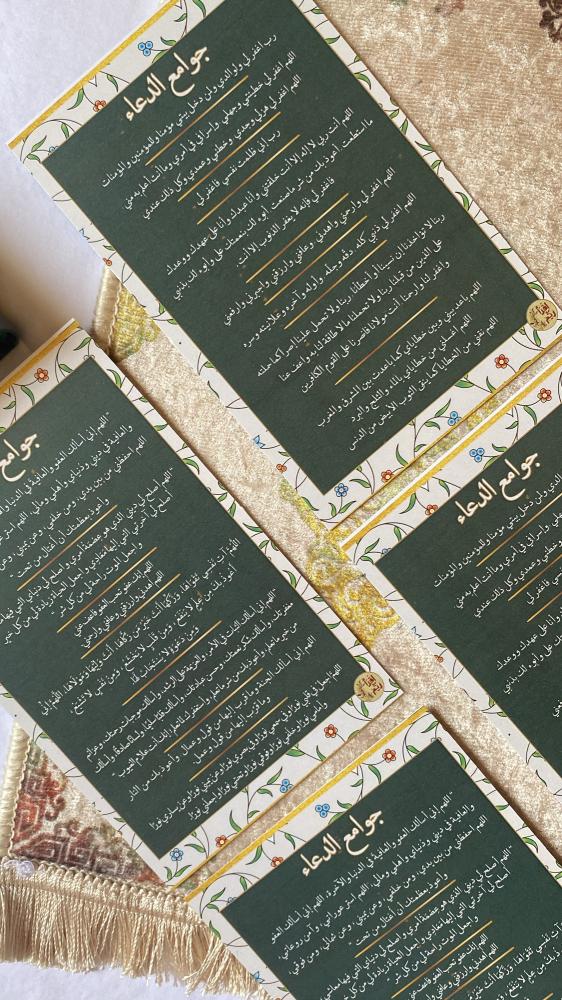 جوامع الدعاء
رب اغفر لي ولوالدي ولمن دخل بيتي مؤمنا وللمؤمنين والمؤمنات
اللهم اغفر لي خطيئتي وجهلي وإسرافي في أمري وما أنت أعلم به مني
اللهم اغفر لي هزلي وجدي وخطئي وعمدي وكل ذلك عندي
رب إني ظلمت نفسي فاغفر لي
اللهم أنت ربي لا إله إلا أنت خلقتني وأنا عبدك وأنا على عهدك ووعدك
ما استطعت أعوذ بك من شر ما صنعت أبوء لك بنعمتك علي وأبوء لك بذنبي
فاغفر لي فإنه لا يغفر الذنوب إلا أنت
اللهم اغفر لي وارحمني واهدني وعافني وارزقني واجبرني وارفعني
اللهم اغفر لي ذنبي كله، دقه وجله، وأوله وآخره وعلانيته وسره
ربنا لا تؤاخذنا إن نسينا أو أخطأنا ربنا ولا تحمل علينا إصرا كما حملته
على الذين من قبلنا ربنا ولا تحملنا ما لا طاقة لنا به واعف عنا
واغفر لنا وارحمنا أنت مولانا فانصرنا على القوم الكافرين
اللهم باعد بيني وبين خطاياي كما باعدت بين المشرق والمغرب
اللهم اغسلني من خطاياي بالماء والثلج والبرد
اللهم نقني من الخطايا كما ينقى الثوب الأبيض من الدنس
جوامع
اللهم إني أسألك العفو والعافية في الدنيا
والعافية في ديني ودنياي وأهلي ومالي، اللهم استر
اللهم احفظني من بين يدي، ومن خلفي، وعن يميني، وعن
وأعوذ بعظمتك أن أغتال من تحتي
اللهم أصلح لي ديني الذي هو عصمة أمري وأصلح لي دنياي التي فيها
أصلح لي آخرتي التي إليها معادي واجعل الحياة زيادة لي من كل خير
واجعل الموت راحة لي من كل شر
اللهم إنك عفو تحب العفو فاعف عني
اللهم اهدني وارزقني وعافني وارحمني
اللهم آت نفسي تقواها، وزكها أنت خير من زكاها، أنت وليها ومولاها، اللهم إني
أعوذ بك من علم لا ينفع، ومن قلب لا يخشع، ومن نفس لا تشبع،
ومن دعوة لا يستجاب لها
اللهم إني أسألك الثبات في الأمر، والعزيمة على الرشد، وأسألك موجبات رحمتك، وعزائم
اللهم إني أسألك الجنة وما قرب إليها من قول أو عمل، وأعوذ بك من النار
وما قرب إليها من قول أو عمل
جوامع الدعاء
ولمن دخل بيتي مؤمنا وللمؤمنين والمؤمنات
وإسرافي في أمري وما أنت أعلم به مني
وخطئي وعمدي وكل ذلك عندي
نفسي فاغفر لي
وأنا على عهدك ووعدك
علي وأبوء لك بذنبي
جوامع الدعاء
اللهم إني أسألك العفو والعافية في الدنيا والآخرة، اللهم إني أسألك العفو
والعافية في ديني ودنياي وأهلي ومالي، اللهم استر عوراتي، وآمن روعاتي
اللهم احفظني من بين يدي، ومن خلفي، وعن يميني، وعن شمالي، ومن فوقي
وأعوذ بعظمتك أن أغتال من تحتي
اللهم أصلح لي ديني الذي هو عصمة أمري وأصلح لي دنياي التي فيها معاشي
أصلح لي آخرتي التي إليها معادي واجعل الحياة زيادة لي من كل خير
واجعل الموت راحة لي من كل شر